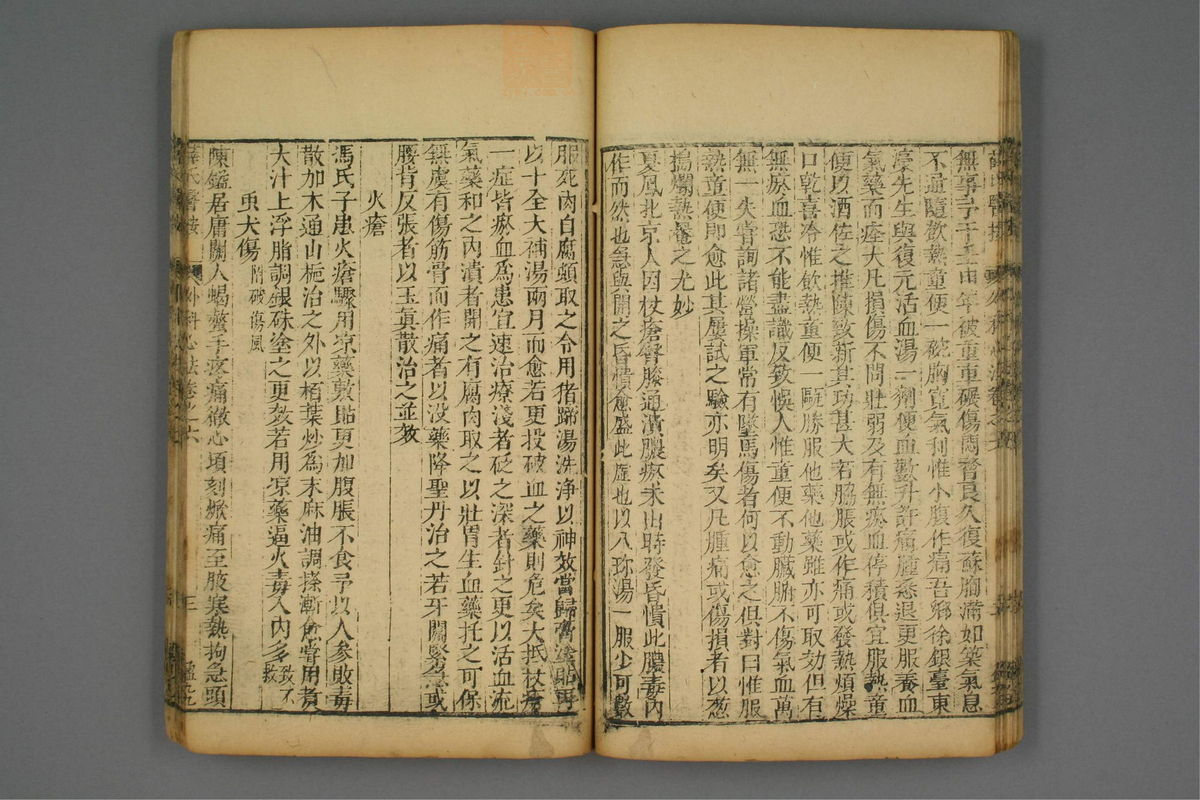 薛氏醫按 外科心法卷之六
無事予于壬申年被重車碾傷悶瞀良久復蘇胸滿如築氣息
不通隨飲熱童便一碗胸寬氣利惟小腹作痛吾鄉徐銀臺東
濠先生與復元活血湯一劑便血數升許痛腫悉退更服養血
氣藥而痊大凡損傷不問壯弱及有無瘀血停積俱宜服熱童
便以酒佐之推陳致新其功甚大若脇脹或作痛或發熱煩燥
口乾喜冷惟飲熱童便一甌勝服他藥他藥雖亦可取効但有
無瘀血恐不能盡識反致悞人惟童便不動臟腑不傷氣血萬
無一失嘗詢諸營操軍常有墜馬傷者何以愈之俱對曰惟服
熱童便即愈此其屢試之驗亦明矣又凡腫痛或傷損者以葱
搗爛熱罨之尤妙
夏鳳北京人因杖瘡臀膝通潰膿瘀未出時發昏憒此膿毒內
作而然也急與開之昏憒愈盛此虛也以八珍湯一服少可數
服死肉自腐頓取之令用猪蹄湯洗浄以神效當歸膏塗貼再
以十全大補湯兩月而愈若更投破血之藥則危矣大抵杖瘡
一症皆瘀血爲患宜速治療淺者砭之深者針之更以活血流
氣藥和之內潰者開之有腐肉取之以壯胃生血藥托之可保
無虞有傷筋骨而作痛者以没藥降聖丹治之若牙關緊急或
腰背反張者以玉眞散治之並效
火瘡
馮氏子患火瘡驟用凉藥敷貼更加腹脹不食予以人參敗毒
散加木通山梔治之外以栢葉炒爲末麻油調搽漸愈嘗用黄
大汁上浮脂調銀硃塗之更效若用凉藥逼火毒入內多致不救
虫犬傷 附破傷風
陳鑑居庸關人蝎螫手疼痛徹心頃刻㾮痛至腋寒熱拘急頭
薛氏醫按 外科心法卷之六 三